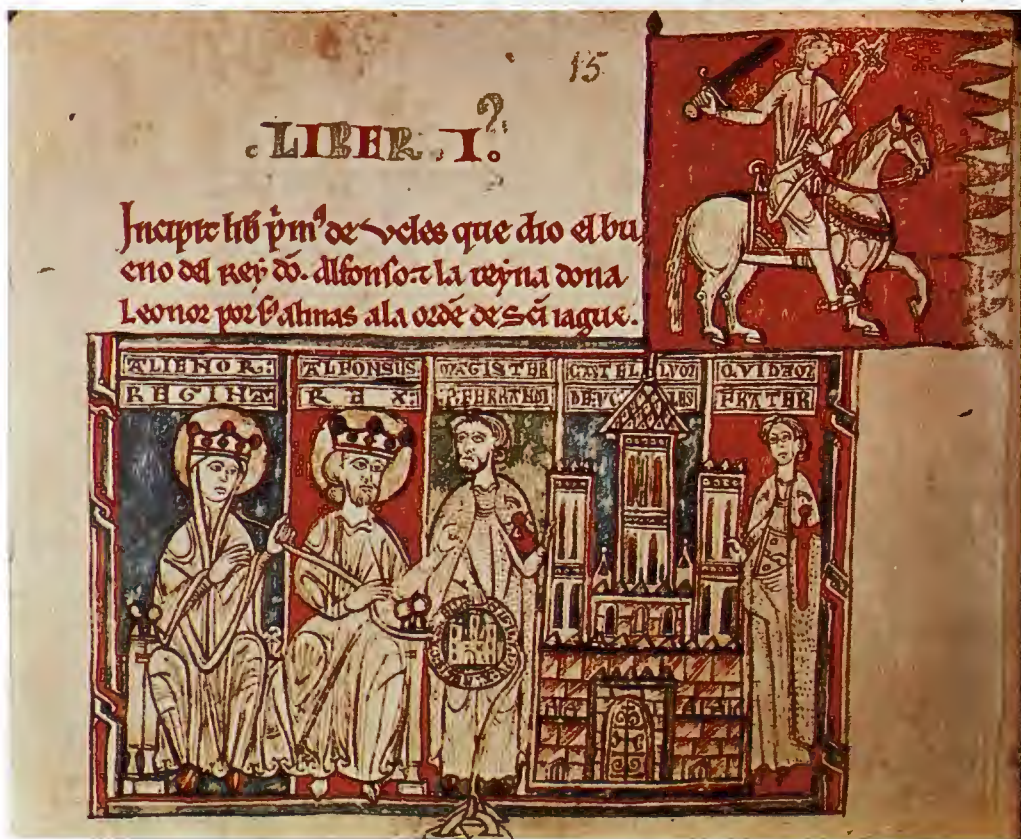 15
LIBER I.º
Incipit lib̄ p̄m⁹ de Ucles que dio el bu
eno del Rey dō. Alfonso. ⁊ la reyna dona
Leonor por sꝰ almas ala ordē de Sc̄i iagus.
ALIENOR: REGINA
ALFONSUS REX:
MAGISTER P. FERRANDI
CASTELLUM DE UCLES
QUIDAM FRATER